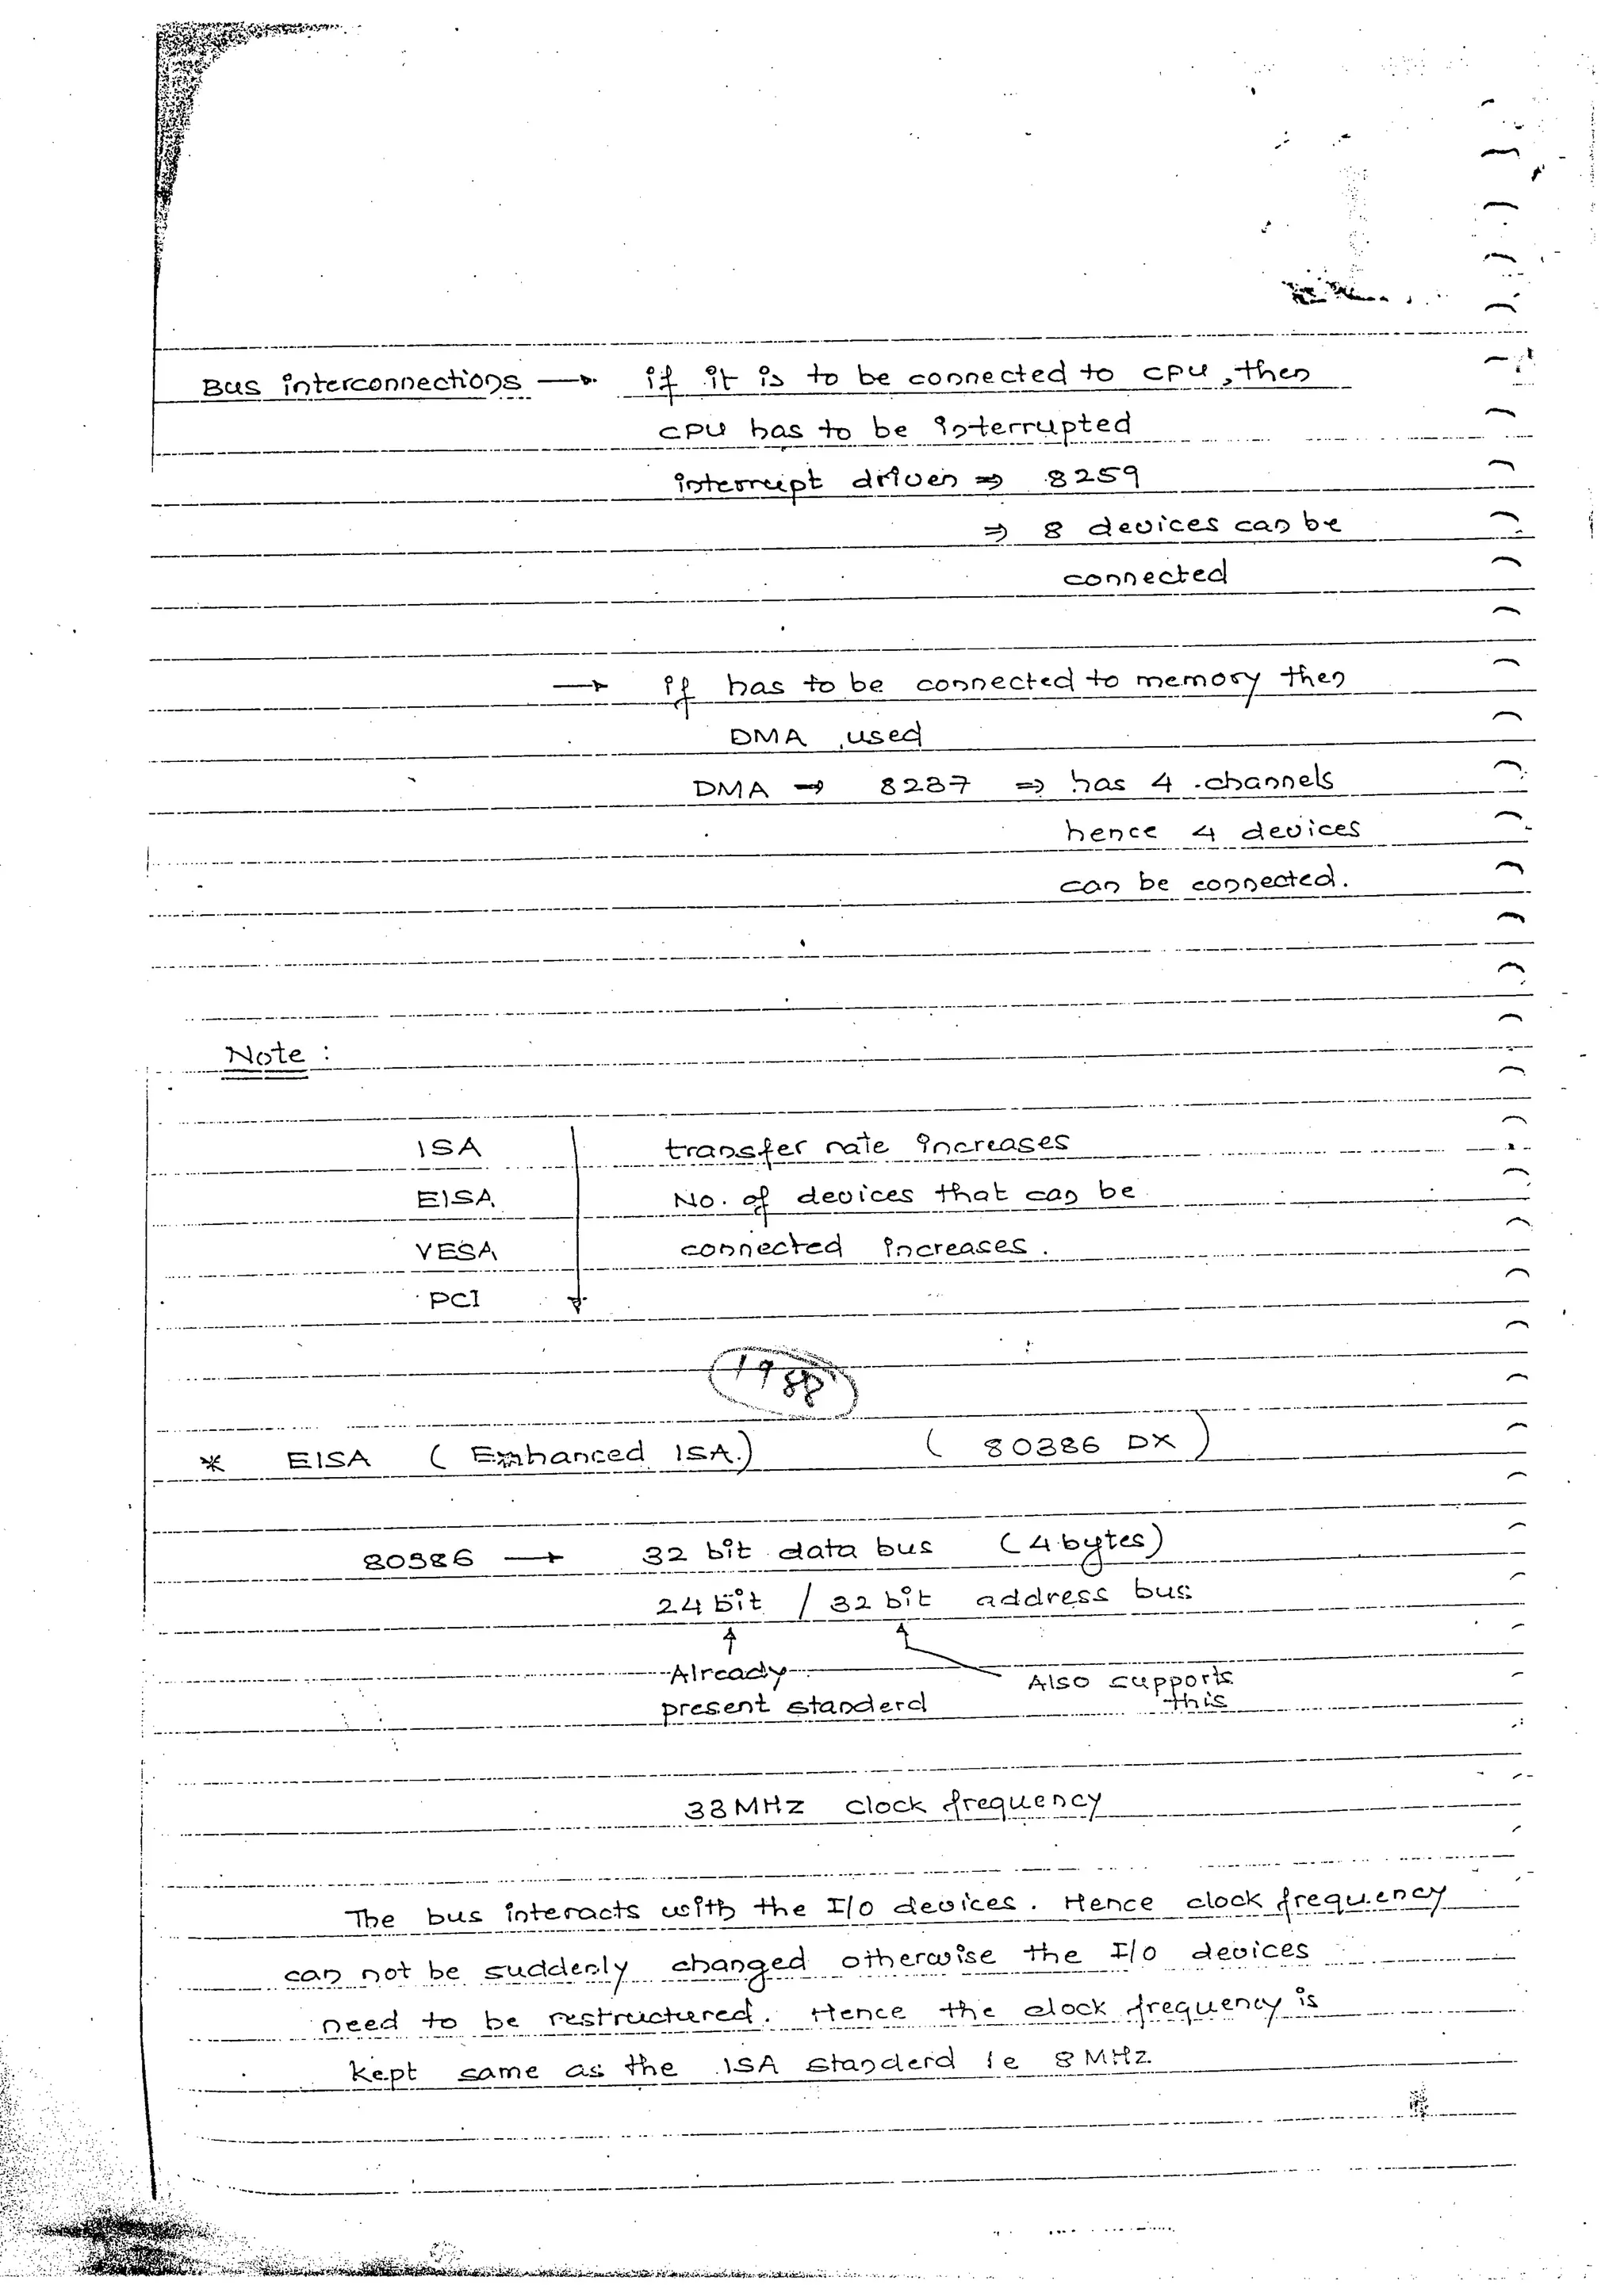 Bus interconnections → if it is to be connected to CPU, then
CPU has to be interrupted
interrupt driven ⇒ 8259
⇒ 8 devices can be
connected
→ if has to be connected to memory then
DMA used
DMA → 8237 ⇒ has 4 channels
hence 4 devices
can be connected.
Note :
ISA transfer rate increases
EISA No. of devices that can be
VESA connected increases.
PCI
1988
* EISA ( Enhanced ISA.) ( 80386 DX )
80386 → 32 bit data bus (4 bytes)
24 bit / 32 bit address bus
Already Also supports
present standerd this
33 MHz clock frequency
The bus interacts with the I/O devices. Hence clock frequency
can not be suddenly changed otherwise the I/O devices
need to be restructured. Hence the clock frequency is
kept same as the ISA standerd ie 8 MHz